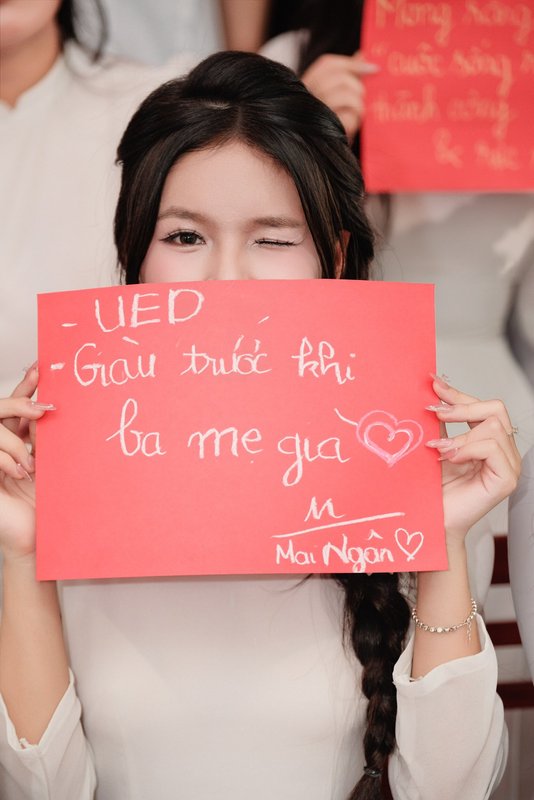 Mong sống
"cuộc sống
thành công
- UED
- Giàu trước khi
ba mẹ già
M
Mai Ngân